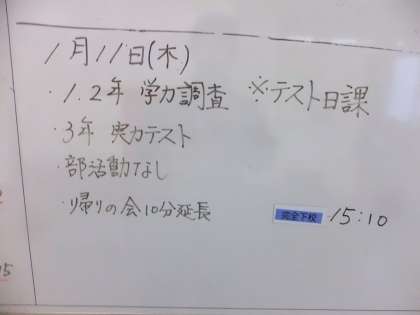 1月11日(木)
・1.2年 学力調査 ※テスト日課
・3年 実力テスト
・部活動なし
・帰りの会10分延長
完全下校 15:10